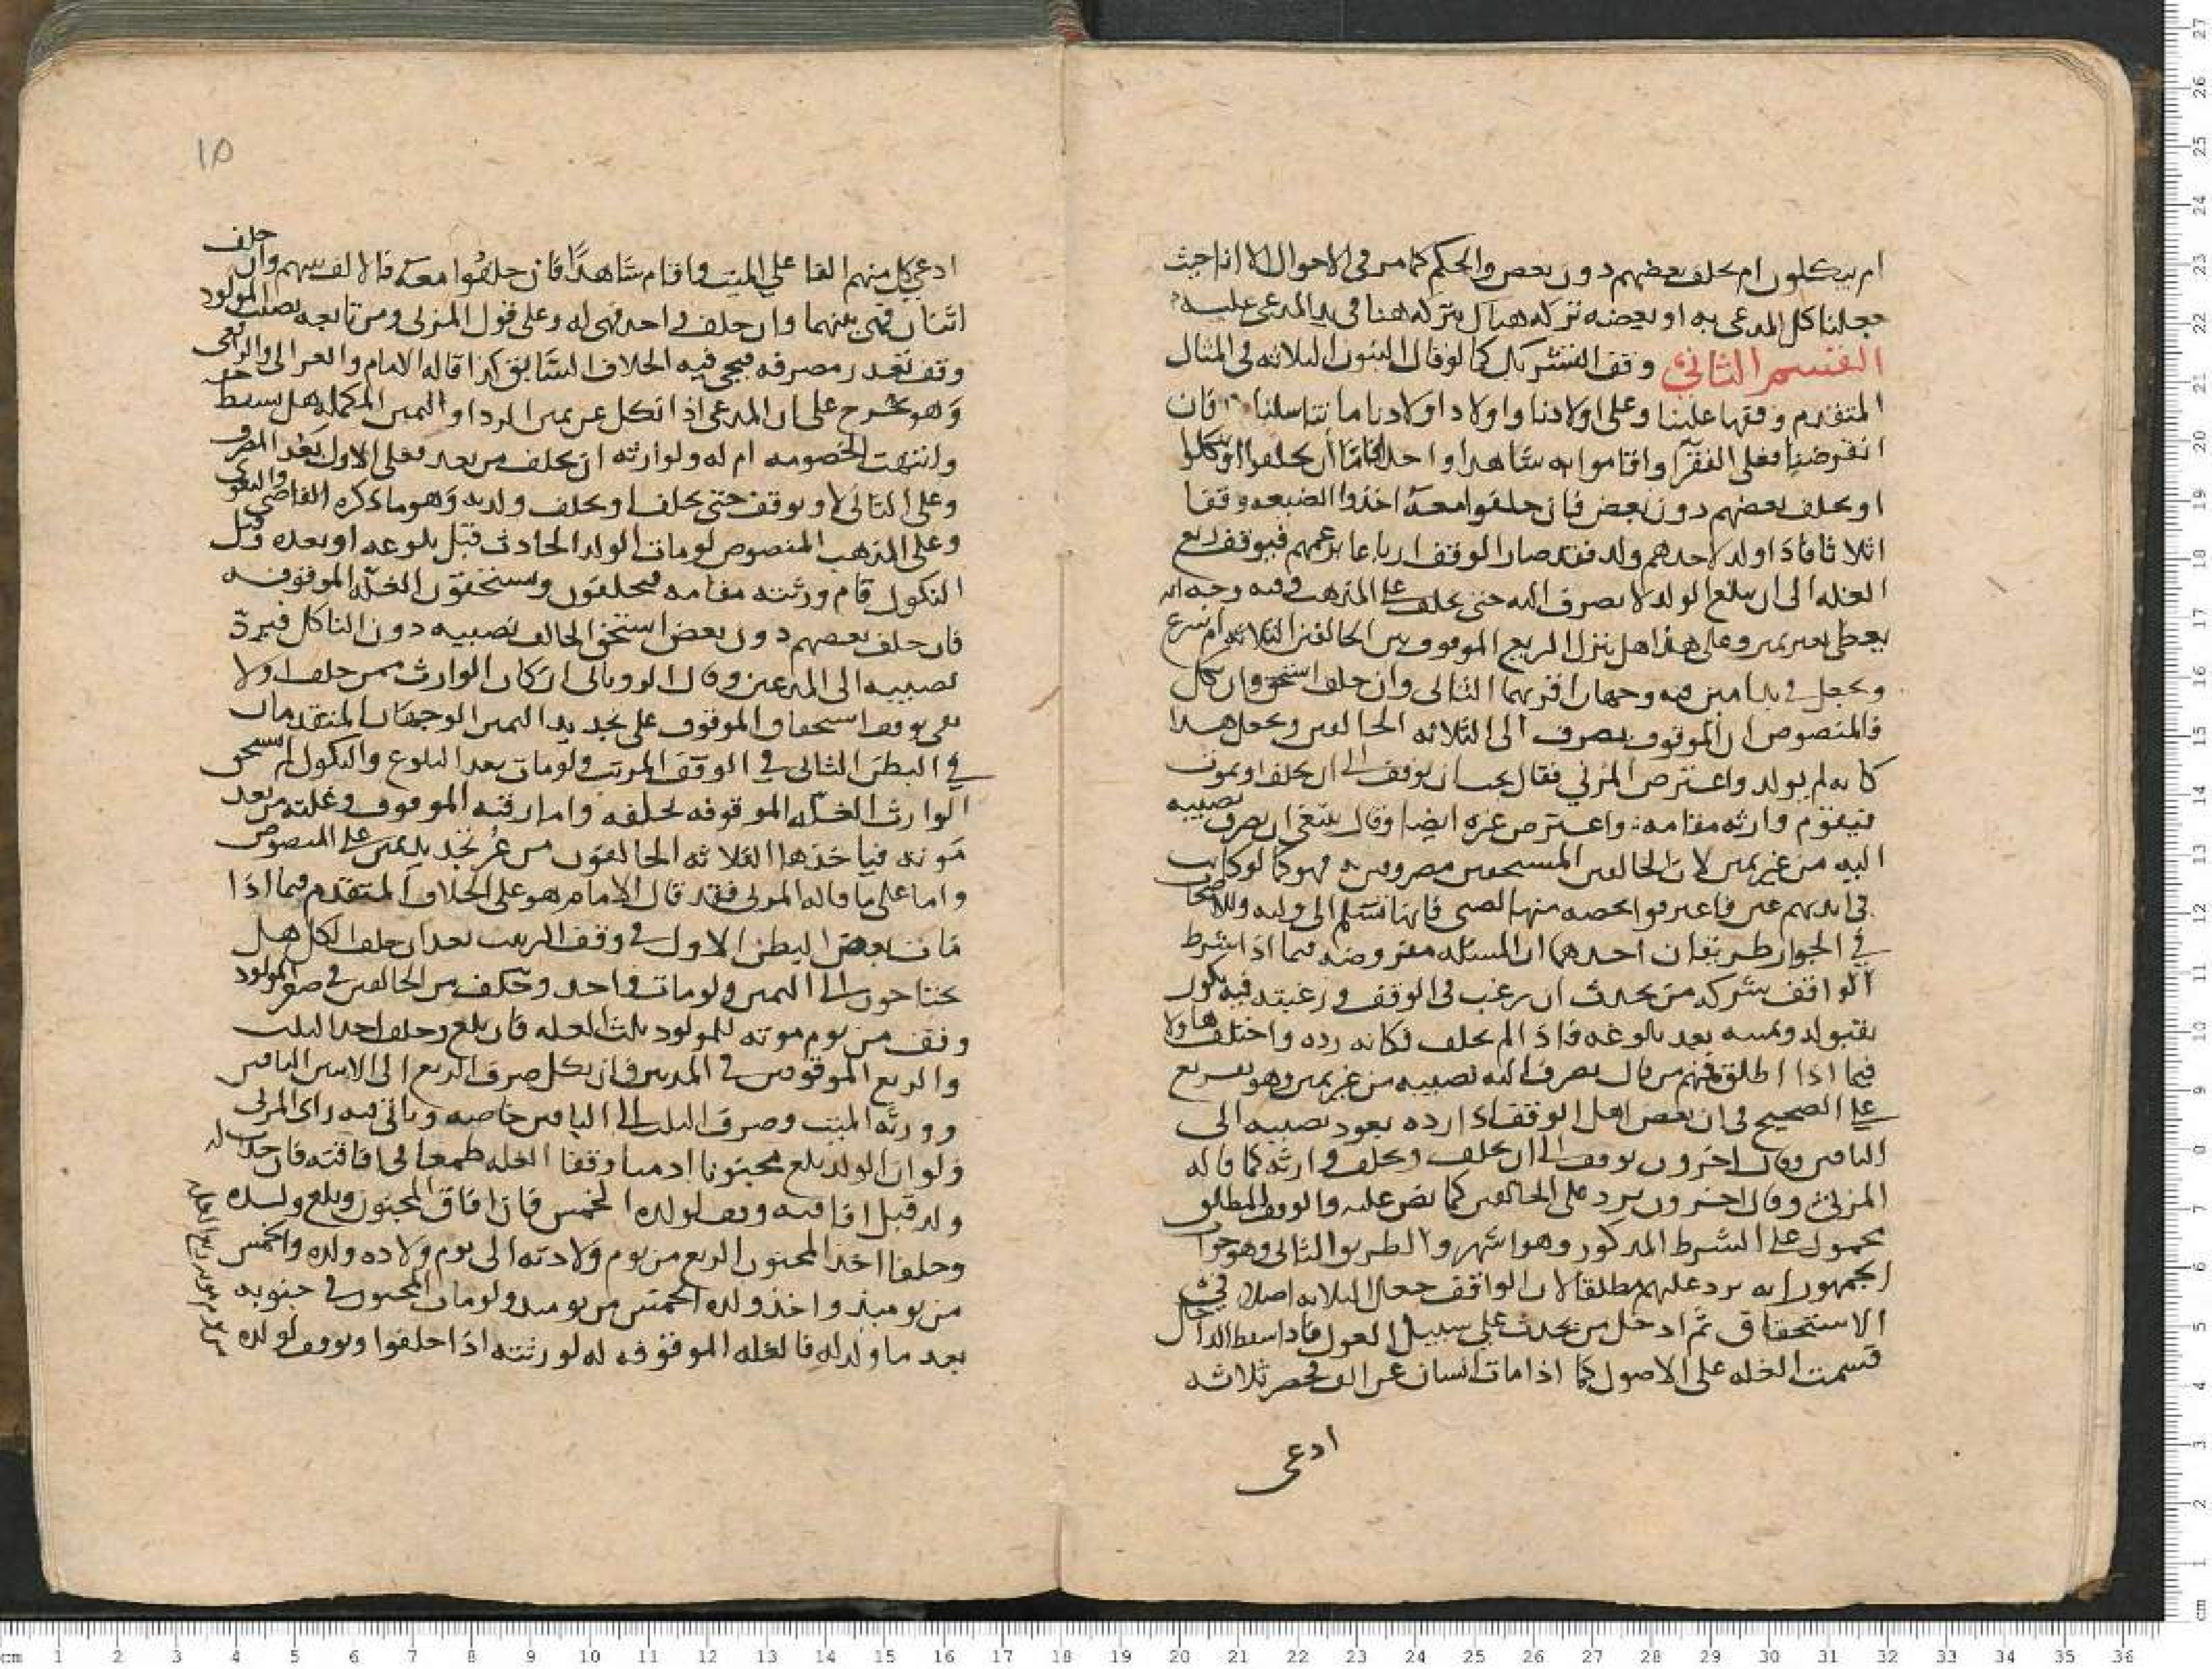 ام ينكلون ام يحلف بعضهم دون بعض والحكم كما مر في الاحوال الا انا حيث
جعلنا كل المدعى به او بعضه تركه هناك يتركه هنا في يد المدعى عليه
القسم الثاني وقف التشريك كما لو قال البنون الثلاثه في المثال
المتقدم وقفها علينا وعلى اولادنا واولاد اولادنا ما تناسلنا فان
انقرضنا فعلى الفقرآ واقاموا به شاهدا واحدا فاما أن يحلفوا او ينكلوا
او يحلف بعضهم دون بعض فان حلفوا معه اخذوا الضيعه وقفا
اثلاثا فاذا ولد لاحدهم ولد فقد صار الوقف ارباعا بزعمهم فيوقف ربع
الغله الى ان يبلغ الولد لا يصرف اليه حتى يحلف على المذهب وفيه وجه انه
يعطى بغير يمين وعلى هذا هل ينزل الربع الموقوف بين الحالفين الثلاثه ام ينزع
ويجعل في يد امين فيه وجهان اقربهما الثاني وان حلف استحق وان نكل
فالمنصوص ان الموقوف يصرف الى الثلاثه الحالفين ويجعل هذا
كانه لم يولد واعترض المزني فقال يجب ان يوقف الى ان يحلف او يموت
فيقوم وارثه مقامه واعترض غيره ايضا وقال ينبغي ان يصرف نصيبه
اليه من غير يمين لان الحالفين المستحقين مصرون به فهو كما لو كانت
في ايديهم عين فاعترفوا بحصه منها لصبي فانها تسلم الى وليه وللاصحاب
في الجواب طريقان احدهما ان المسئله مفروضه فيما اذا شرط
الواقف شركه من يحدث ان رغب في الوقف ورغبته فيه تكون
بقبوله ويمينه بعد بلوغه فاذا لم يحلف فكانه رده واختلف هاولا
فيما اذا اطلق فمنهم من قال يصرف اليه نصيبه من غير يمين وهو تفريع
على الصحيح في ان بعض اهل الوقف اذا رده يعود نصيبه الى
الباقين وقال اخرون يوقف الى ان يحلف ويحلف وارثه كما قاله
المزني وقال اخرون يرد على الحالفين كما نص عليه والوقف المطلق
محمول على الشرط المذكور وهو اشهر والطريق الثاني وهو جواب
الجمهور انه يرد عليهم مطلقا لان الواقف جعل الثلاثه اصلا في
الاستحقاق ثم ادخل من يحدث على سبيل العول فاذا سقط الداخل
قسمت الغله على الاصول كما اذا مات انسان عن الف فحضر ثلاثه
ادعى
١٥
ادعى كل منهم الفا على الميت واقام شاهدًا فان حلفوا معه فالالف بينهم وان حلف
اثنان فهي بينهما وان حلف واحد فهي له وعلى قول المزني ومن تابعه نصيب المولود
وقف تعذر مصرفه فيجي فيه الخلاف السابق كذا قاله الامام والغزالي والرافعي
وهو مخرج على ان المدعي اذا نكل عن يمين الرد او اليمين المكمله هل يسقط حقه
وانتهت الخصومه ام له ولوارثه ان يحلف من بعد فعلى الاول تعذر المصرف
وعلى الثاني لا ويوقف حتى يحلف او يحلف ولده وهو ما ذكره القاضي والبغوي
وعلى المذهب المنصوص لو مات الولد الحادث قبل بلوغه او بعده وقبل
النكول قام ورثته مقامه فيحلفون ويستحقون الغله الموقوفه
فان حلف بعضهم دون بعض استحق الحالف نصيبه دون الناكل فيرد
نصيبه الى المدعين وقال الروياني ان كان الوارث ممن حلف اولا
ففي توقف استحقاق الموقوف على تجديد اليمين الوجهان المتقدمان
في البطن الثاني في الوقف المرتب ولو مات بعد البلوغ والنكول لم يستحق
الوارث الغله الموقوفه بحلفه واما رقبه الموقوف وغلته من بعد
موته فياخذها الثلاثه الحالفون من غير تجديد يمين على المنصوص
واما على ما قاله المزني فقد قال الامام هو على الخلاف المتقدم فيما اذا
مات بعض البطن الاول في وقف الترتيب بعد ان حلف الكل هل
يحتاجون الى اليمين ولو مات واحد وحلف من الحالفين في صغر المولود
وقف من يوم موته للمولود ثلث الغله فان بلغ وحلف اخذ الثلث
والربع الموقوفين في المدتين وان نكل صرف الربع الى الاثنين الباقيين
وورثه الميت وصرف الثلث الى الباقيين خاصه وياتي فيه راى المزني
ولو ان الولد بلغ مجنونا ادمنا وقف الغله طمعا في افاقته فان حدث له
ولد قبل افاقته وقف لولده الخمس فان افاق المجنون وبلغ ولده
وحلفا اخذ المجنون الربع من يوم ولادته الى يوم ولاده ولده والخمس
من يوميذ واخذ ولده الخمس من يوميذ ولو مات المجنون في جنونه
بعد ما ولد له فالغله الموقوفه له لورثته اذا حلفوا ويوقف لولده